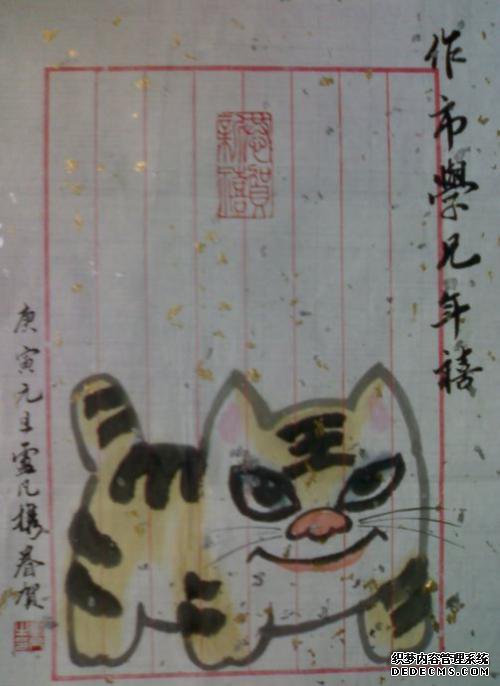 作市學兄年禧
恭賀
新禧
庚寅元旦靈凡攜眷賀
织梦内容管理系统
DEDECMS.COM